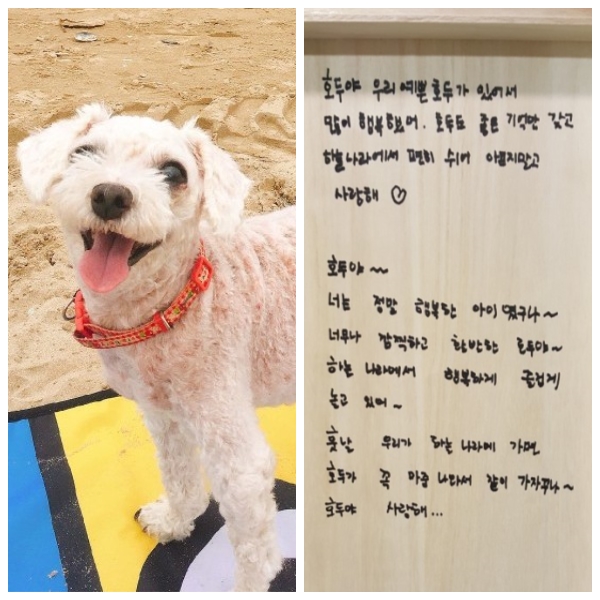 호두야 우리 예쁜 호두가 있어서
많이 행복했어. 호두도 좋은 기억만 갖고
하늘나라에서 편히 쉬어 아프지말고
사랑해 ♡
호두야 ~~
너는 정말 행복한 아이였구나~
너무나 깜찍하고 호두야~
하늘 나라에서 행복하게 즐겁게
놀고 있어~
훗날 우리가 하늘나라에 가면
호두가 꼭 마중 나와서 같이 가자꾸나~
호두야 사랑해...